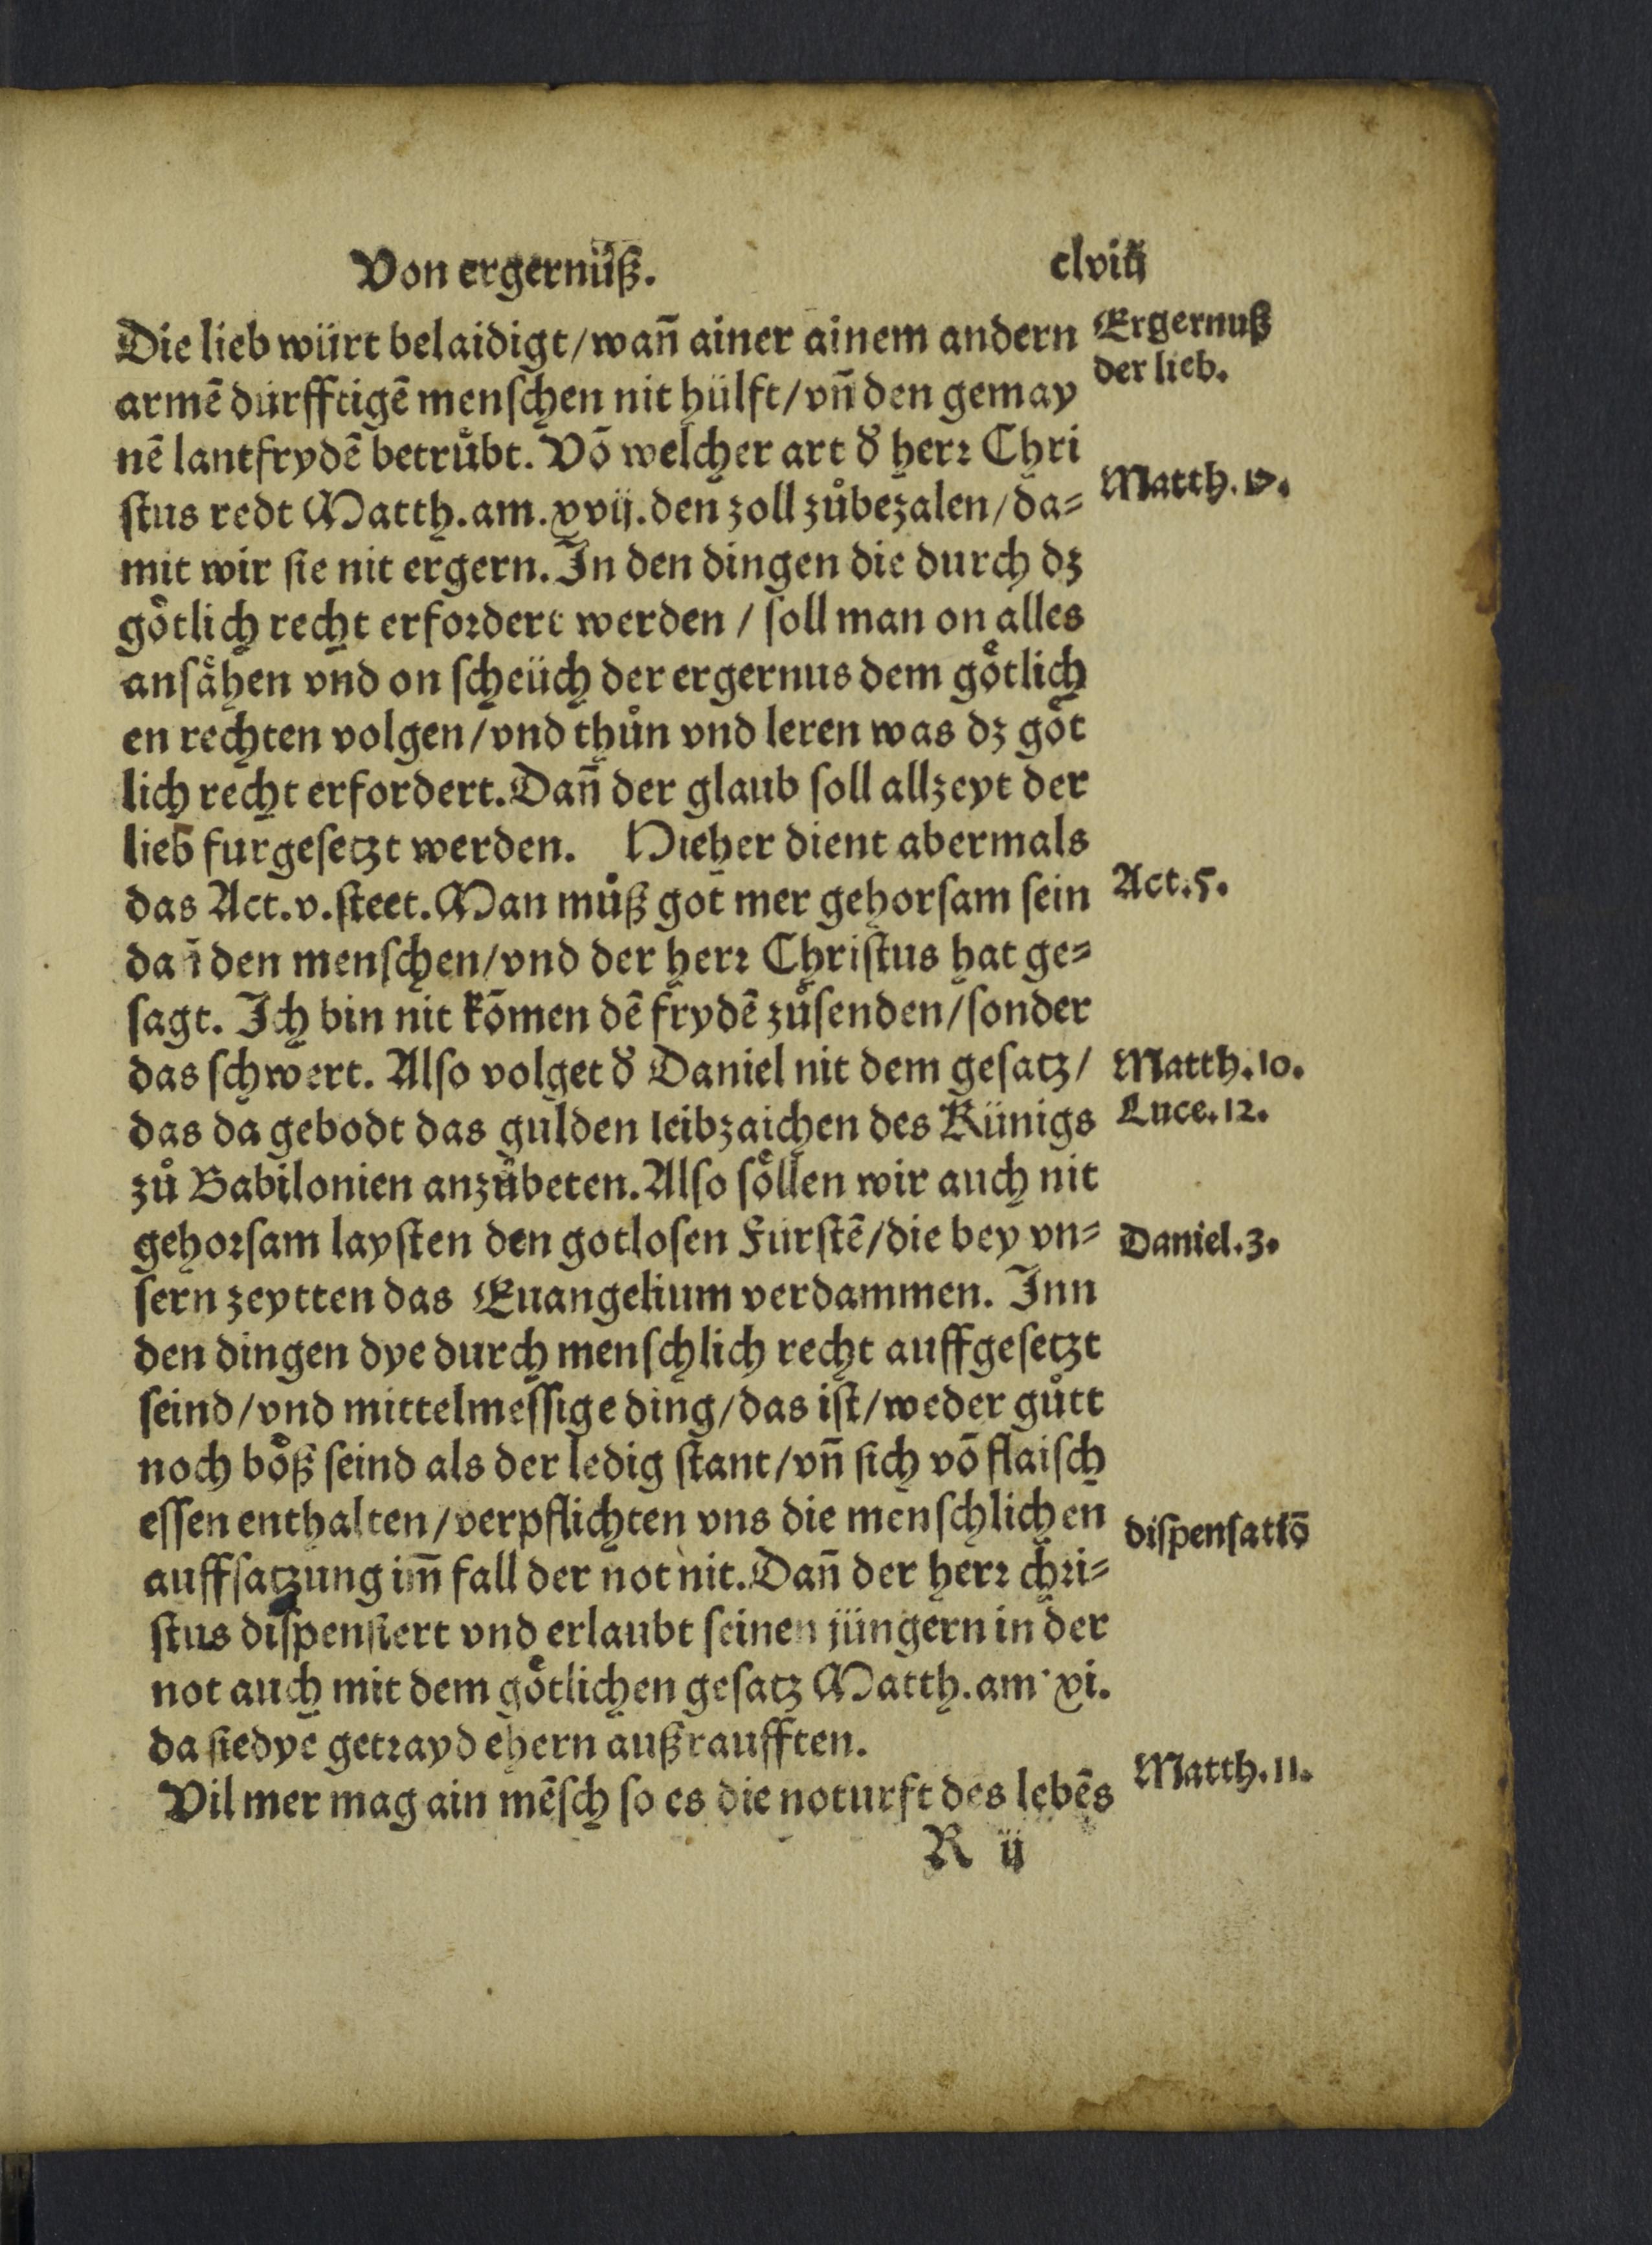 Von ergernüß.
clviij
Die lieb würt belaidigt/wañ ainer ainem andern
Ergernuß
der lieb.
armē dürfftigē menſchen nit hülft/vñ den gemay
nē lantfrydē betruͤbt. Võ welcher art d̕ herꝛ Chri
ſtus redt Matth.am.xvij.den zoll zuͦbezalen/da⸗
Matth.17.
mit wir ſie nit ergern. In den dingen die durch dz
goͤtlich recht erfoꝛdert werden / ſoll man on alles
anſaͤhen vnd on ſcheüch der ergernus dem goͤtlich
en rechten volgen/vnd thuͦn vnd leren was dz goͤt
lich recht erfordert. Dañ der glaub ſoll allzeyt der
lieb furgeſetzt werden. Hieher dient abermals
das Act.v.ſteet. Man muͦß got mer gehorſam ſein
Act.5.
dañ den menſchen/vnd der herꝛ Chriſtus hat ge⸗
ſagt. Ich bin nit kõmen dē frydē zuͦſenden/ſonder
das ſchwert. Alſo volget d̕ Daniel nit dem geſatz/
Matth.10.
Luce.12.
das da gebodt das gulden leibzaichen des Künigs
zuͦ Babilonien anzuͦbeten. Alſo ſoͤllen wir auch nit
gehoꝛſam layſten den gotloſen Fürſtē/die bey vn⸗
Daniel.3.
ſern zeytten das Euangelium verdammen. Inn
den dingen dye durch menſchlich recht auffgeſetzt
ſeind/vnd mittelmeſſige ding/das iſt/weder guͦtt
noch boͤß ſeind als der ledig ſtant/vñ ſich võ flaiſch
eſſen enthalten/verpflichten vns die menſchlichen
diſpenſatiõ
auffſatzung im̃ fall der not nit. Dañ der herꝛ chꝛi⸗
ſtus diſpenſiert vnd erlaubt ſeinen jüngern in der
not auch mit dem goͤtlichen geſatz Matth.am xi.
da ſie dye getꝛayd ehern außraufften.
Matth.11.
Vil mer mag ain mēſch ſo es die noturft des lebēs
R ij